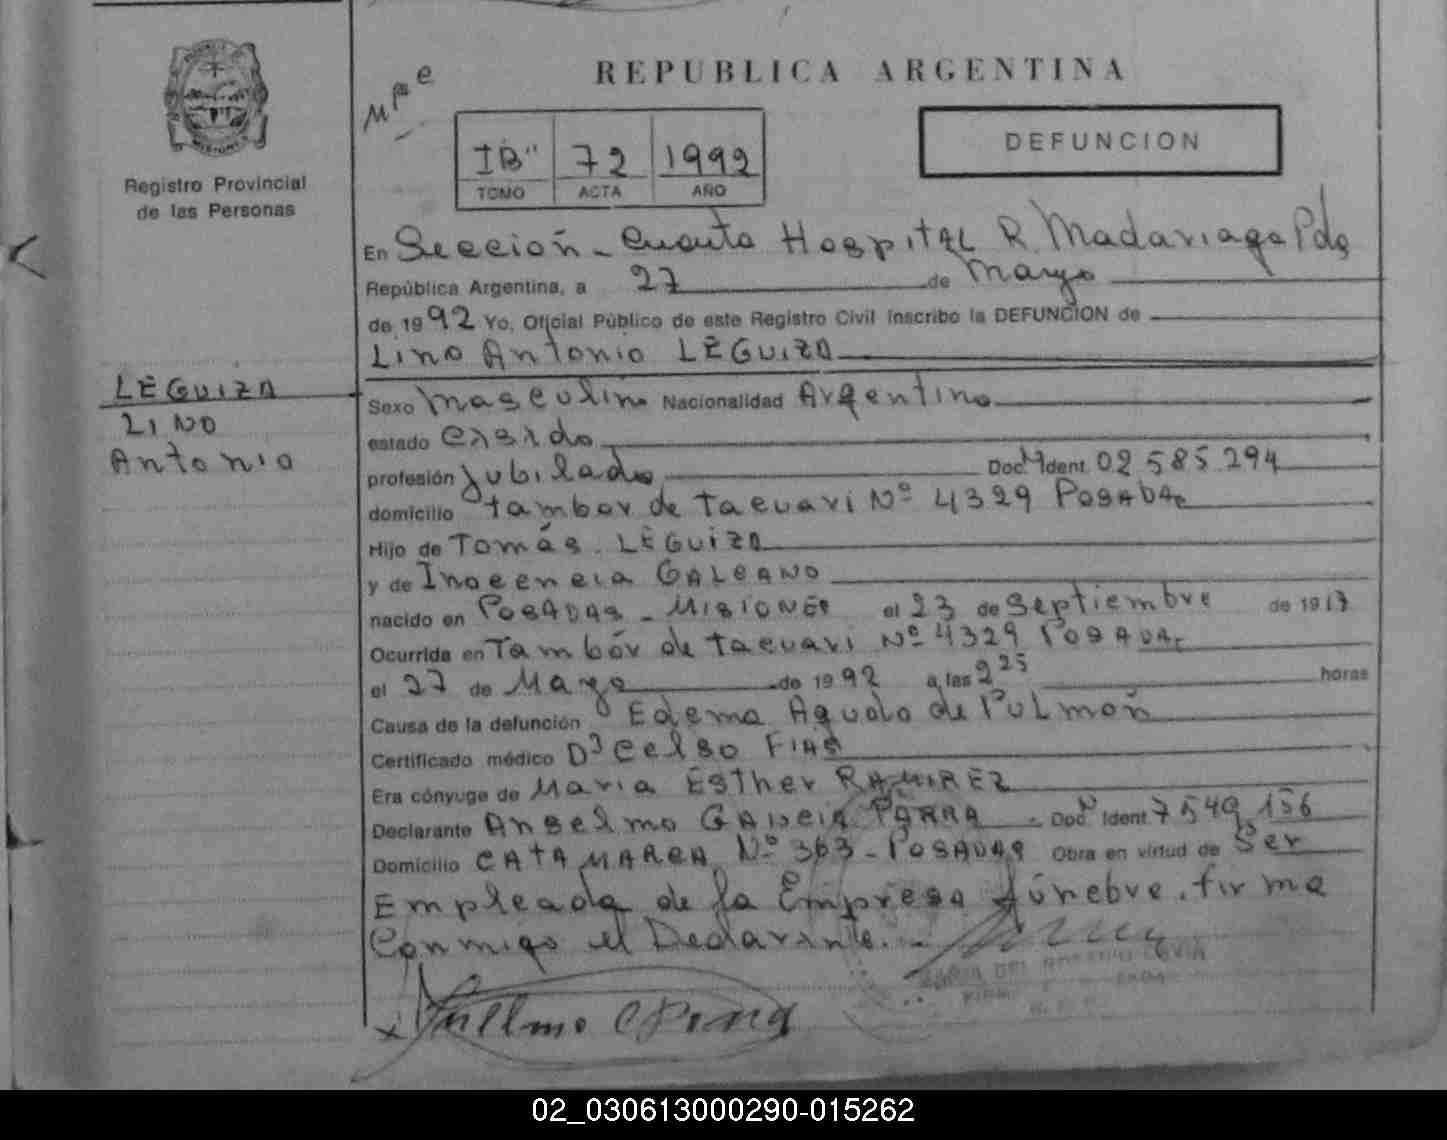 REPUBLICA ARGENTINA
DEFUNCION
IB" 72 1992
TOMO ACTA AÑO
MISIONES
Registro Provincial
de las Personas
En Sección - Cuarta Hospital R. Madariaga Pdas
República Argentina, a 27 de Marzo
de 1992 Yo, Oficial Público de este Registro Civil inscribo la DEFUNCION de
Lino Antonio LEGUIZA
LEGUIZA
LINO
Antonio
Sexo Masculino Nacionalidad Argentino
estado casado
profesión Jubilado Doc. M Ident. 02 585 294
domicilio Tambor de Tacuari Nº 4329 POSADAS
Hijo de Tomás LEGUIZA
y de Inocencia GALEANO
nacido en POSADAS - MISIONES el 23 de Septiembre de 1917
Ocurrida en Tambór de Tacuari Nº 4329 POSADAS
el 27 de Marzo de 1992 a las 9 25 horas
Causa de la defunción Edema Agudo de Pulmoñ
Certificado médico Dr Celso FIAS
Era cónyuge de Maria Esther RAMIREZ
Declarante Anselmo GARCIA PARRA Doc. N Ident 7 549 156
Domicilio CATAMARCA Nº 363 - POSADAS Obra en virtud de Ser
Empleada de la Empresa fúnebre. firma
Conmigo el Declarante.-
MARIA DEL ROSARIO
02_030613000290-015262